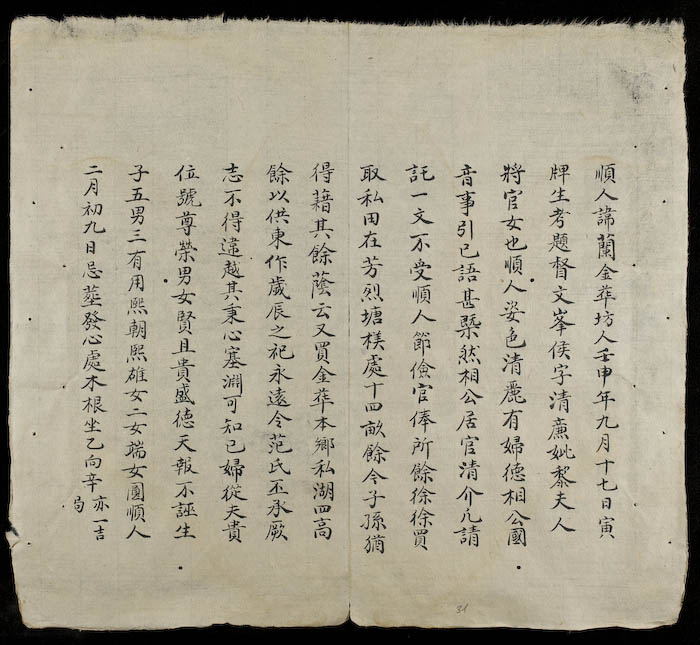 順人諱蘭金華坊人壬申年九月十七日寅
牌生考題督文峯侯字清廉妣黎夫人
將官女也順人姿色清麗有婦德相公國
音事引已語甚槩然相公居官清介凡請
託一文不受順人節儉官俸所餘徐徐買
取私田在芳烈塘樸處十四畝餘今子孫猶
得藉其餘蔭云又買金華本鄉私湖四高
餘以供東作歲辰之祀永遠令范氏丕承厥
志不得違越其秉心塞淵可知已婦從夫貴
位號尊榮男女賢且貴盛德天報不誣生
子五男三有用熙朝熙雄女二女端女團順人
二月初九日忌葬發心處木根坐乙向辛 亦一吉
局
31